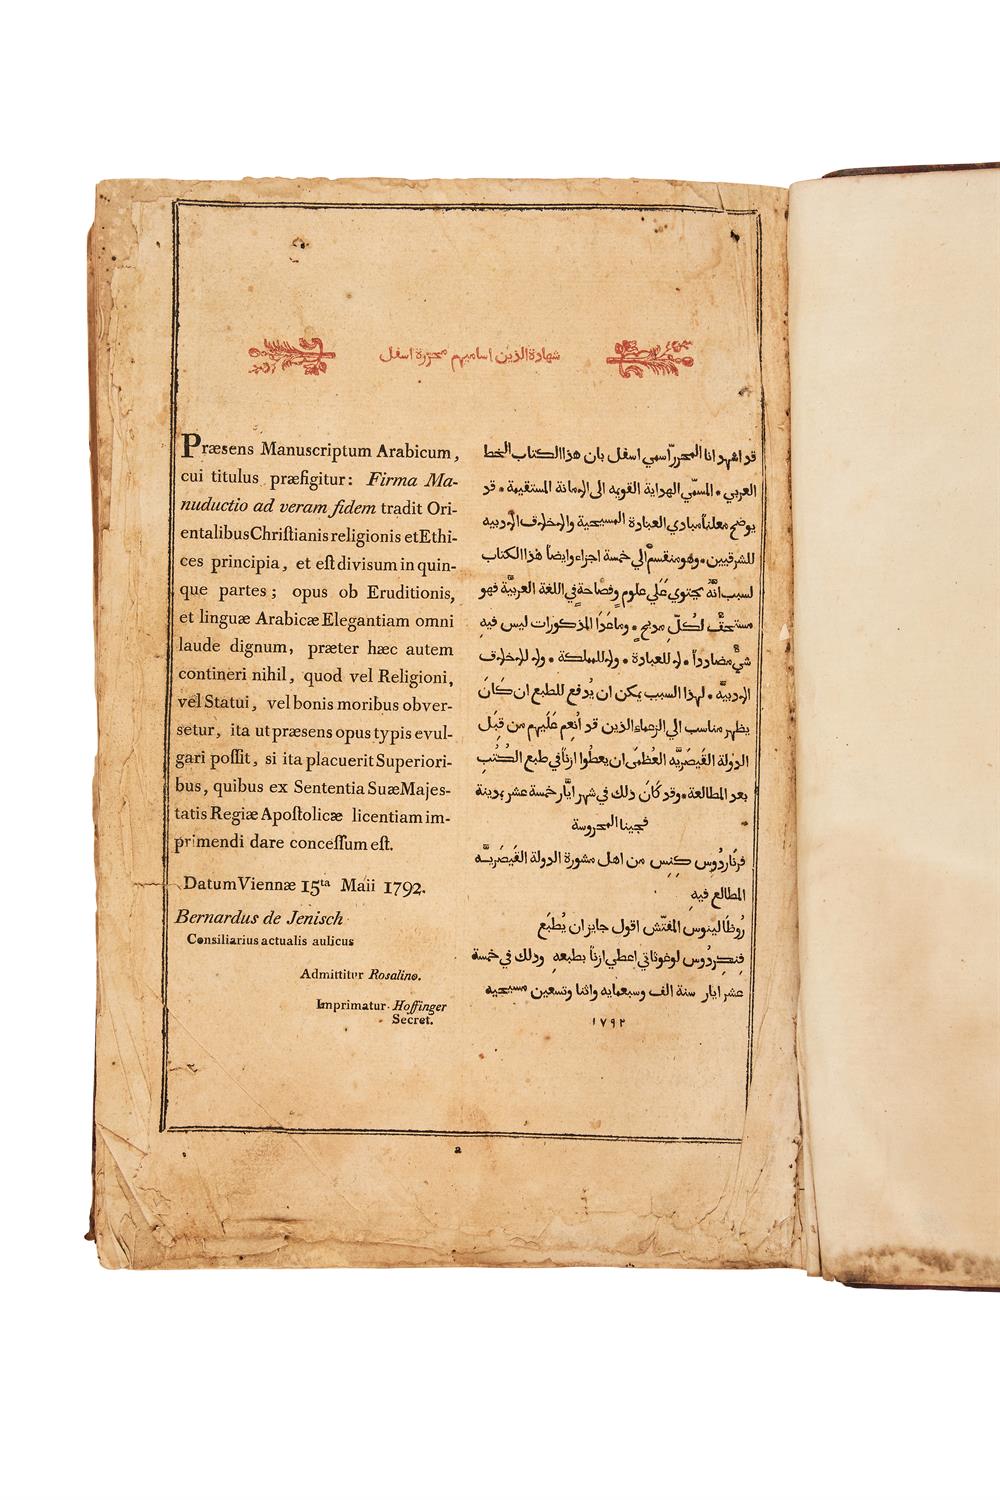 شهادة الذين اساميهم محررة اسفل
Præsens Manuscriptum Arabicum,
cui titulus præfigitur: Firma Ma-
nuductio ad veram fidem tradit Ori-
entalibus Chriſtianis religionis et Ethi-
ces principia, et eſt divisum in quin-
que partes; opus ob Eruditionis,
et linguæ Arabicæ Elegantiam omni
laude dignum, præter hæc autem
contineri nihil, quod vel Religioni,
vel Statui, vel bonis moribus obver-
setur, ita ut præsens opus typis evul-
gari poſſit, si ita placuerit Superiori-
bus, quibus ex Sententia Suæ Majes-
tatis Regiæ Apoſtolicæ licentiam im-
primendi dare conceſſum eſt.
Datum Viennæ 15ta Maii 1792.
Bernardus de Jenisch
Consiliarius actualis aulicus
Admittitur Rosalino.
Imprimatur. Hoffinger
Secret.
قد اشهد انا المحرر اسمي اسفل بان هذا الكتاب الخط
العربي * المسمّي الهداية القويمه الى الامانة المستقيمة * قد
يوضح معلناً مبادي العبادة المسيحية والاخلاف الادبيه
للشرقيين * وهو منقسمٌ الي خمسة اجزاء وايضاً هذا الكتاب
لسبب انّهُ يحتوي عَلي علوم وفصاحةٍ في اللغة العربيَّة فهو
مستحقٌّ لكُلّ مديحٍ * وما عَدَا المذكورات ليس فيهِ
شيٌ مضادداً * لا للعبادة * ولا للمملكة * ولا للاخلاف
الادبيّه * لهذا السبب يمكن ان يُدفع للطبع ان كَانَ
يظهر مناسب الي الزعماء الذين قد اُنعِم عَلَيهم من قِبَل
الدولة القَيصَريَّه العُظمَى ان يعطُوا ازناً في طبع الكُتُبِ
بعد المطالعة * وقد كَانَ دلك في شهر ايَّار خمسة عشر بمدينة
فجينا المحروسة
فرنَاردُوس كِنِس من اهل مشورة الدولة القَيصَريَّه
المطالع فيهِ
رُوظَا لينوس المفتّش اقول جايز ان يُطبَع
فِنكِردُوس لوغوثاتي اعطي ازناً بطبعهِ ودلك في خمسة
عشر ايار سنة الف وسبعمايه واثنا وتسعين مسيحيه
١٧٩٢
a